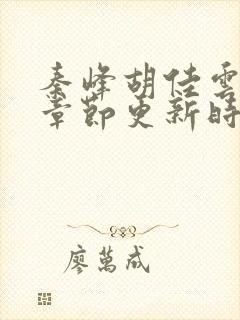 秦峰胡佳雲
章節更新時
廖萬成